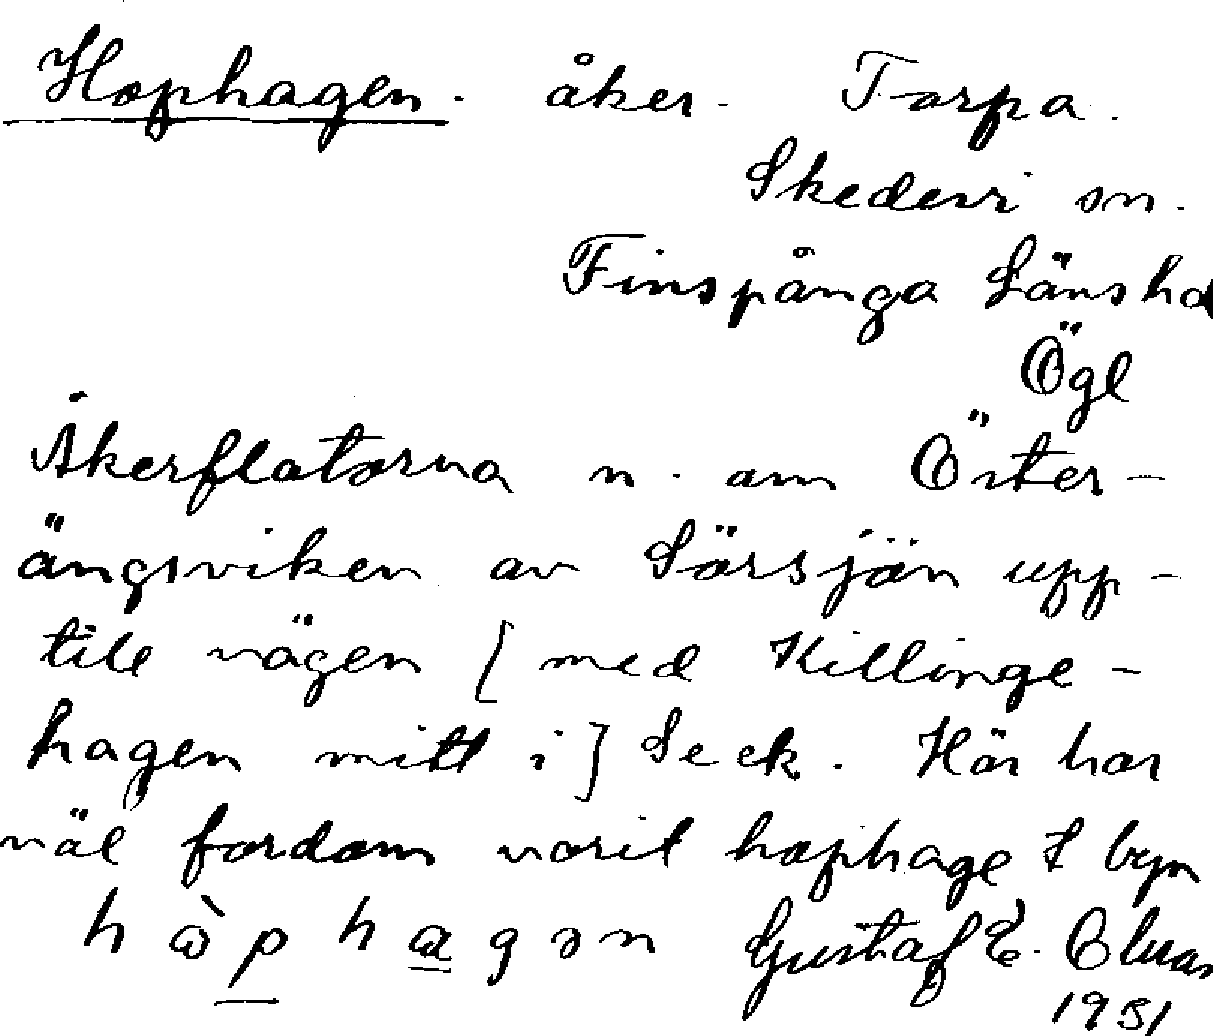 Hophagen. åker. Torpa.
Skedevi sn.
Finspånga Länshd
Ögl
Åkerflatorna n. om Öster-
ängsviken av Sörsjön upp-
till vägen [med Killinge-
hagen mitt i] Se ek. Här har
väl fordom varit hophage t byn
hòp hagən Gustaf E.
1931